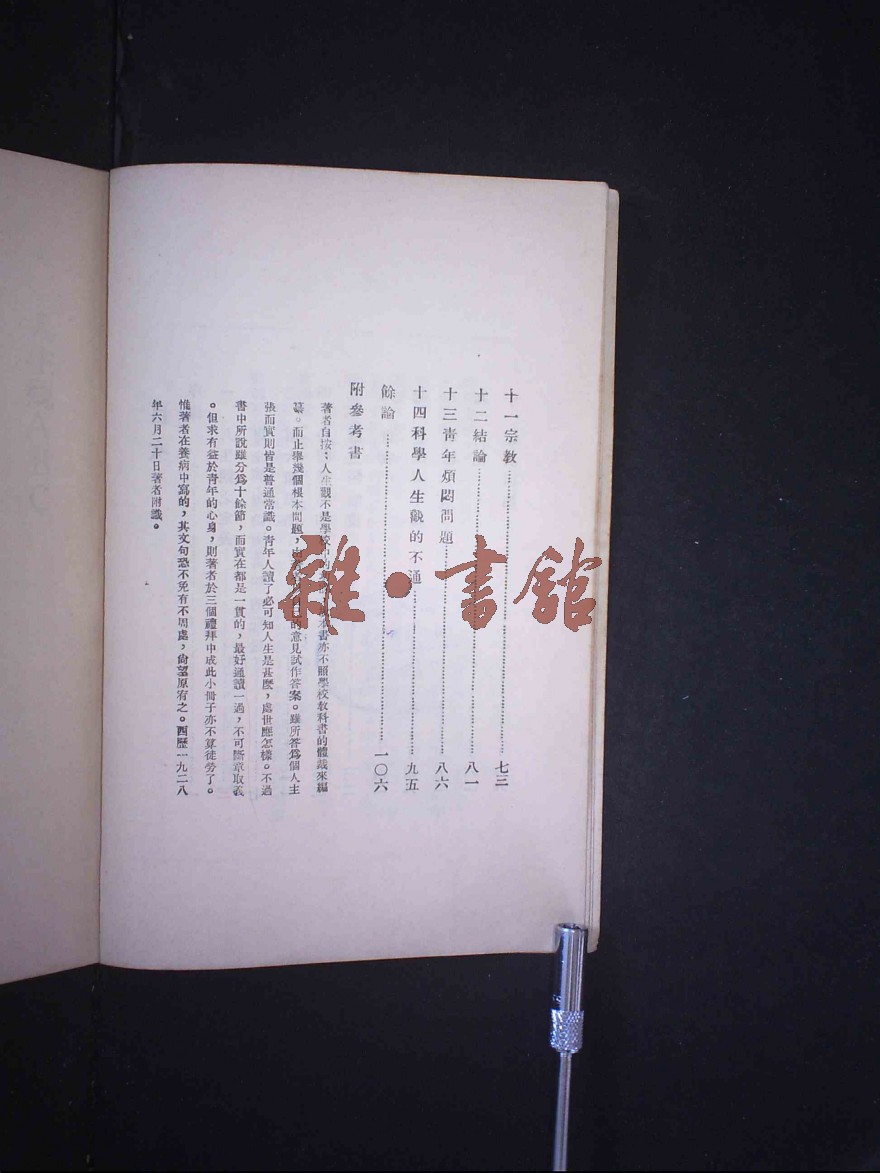 十一宗教……七三
十二結論……八一
十三靑年煩悶問題……八六
十四科學人生觀的不通……九五
餘論……一〇六
附參考書
著者自按：人生觀不是學校中的書亦不照學校敎科書的體裁來編
纂。而止舉幾個根本問題，的意見試作答案。雖所答爲個人主
張而實則皆是普通常識。靑年人讀了必可知人生是甚麼，處世應怎樣。不過
書中所說雖分爲十餘節，而實在都是一貫的，最好通讀一過，不可斷章取義
。但求有益於靑年的心身，則著者於三個禮拜中成此小冊子亦不算徒勞了。
惟著者在養病中寫的，其文句恐不免有不周處，尙望原宥之。西歷一九二八
年六月二十日著者附識。
雜·書館